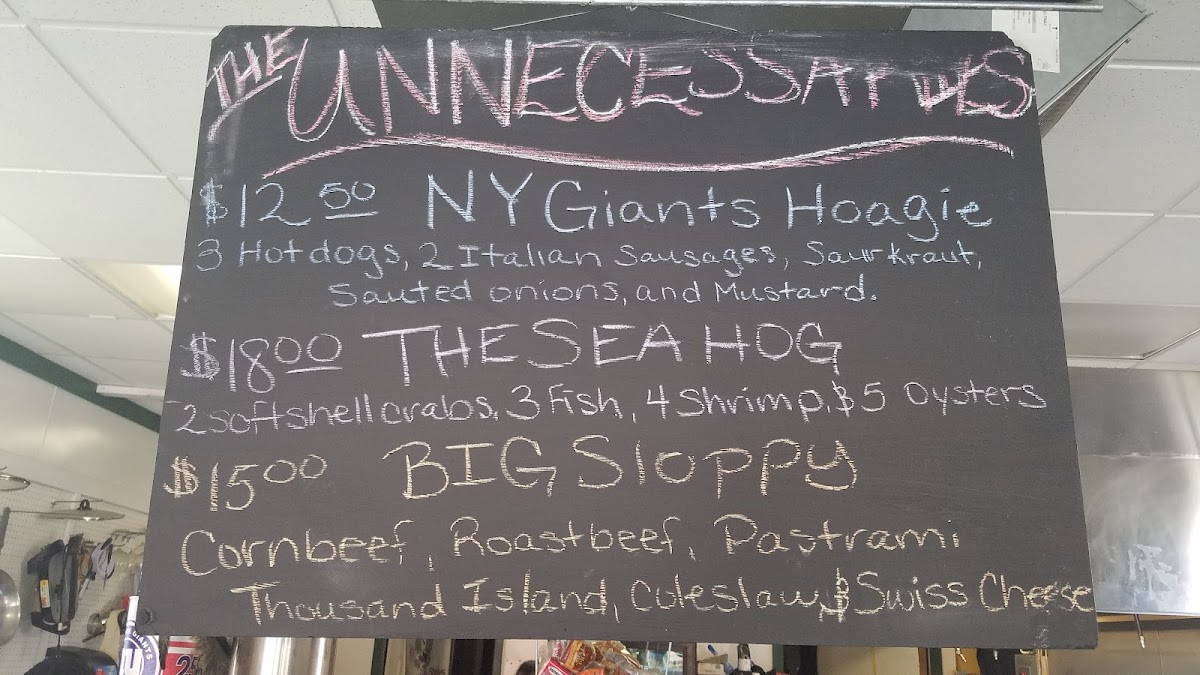 THE UNNECESSARIES
$12 50 NY Giants Hoagie
3 Hotdogs, 2 Italian Sausages, Saurkraut,
Sauted onions, and Mustard.
$18 00 THE SEA HOG
2 softshell crabs, 3 Fish, 4 Shrimp, & 5 Oysters
$15 00 BIG Sloppy
Cornbeef, Roastbeef, Pastrami
Thousand Island, Coleslaw, & Swiss Cheese
GIANTS
25